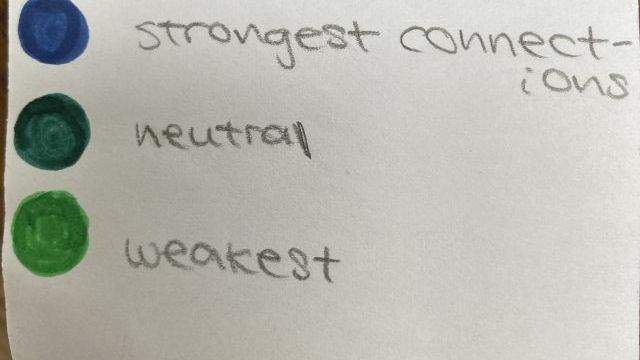 strongest connect-
ions
neutral
weakest